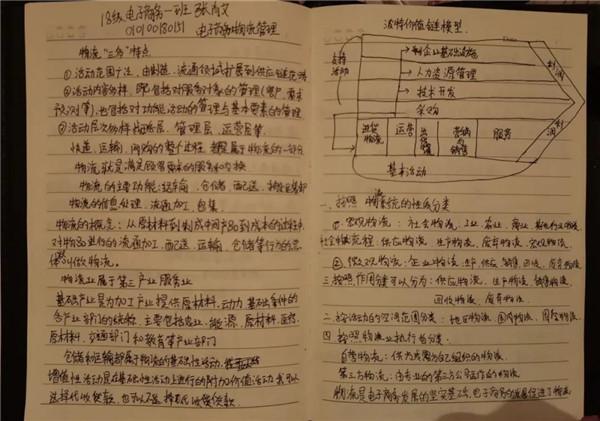 18级电子商务一班 张
010100180151 电子商务物流管理
物流"三多"特点
①活动范围广泛,由制造、流通领域扩展到供应链
②活动内容多样,既包括对服务对象的管理(客户、需求
预测等),也包括对功能活动的管理与基本要素的管理
③活动层次多样 战略层、管理层、运营层等
快递、运输、网购的整个过程,都属于物流的一部分
物流就是满足顾客需求的服务
物流的主要功能:运输、仓储、配送、
物流的信息处理、流通加工、包装
物流的概念:从原材料到制成中间产品到成本的过程中
对物品进行的流通加工、配送、运输、仓储等行为的总
叫做物流。
物流业属于第三产业服务业
基础产业是为加工产业提供原材料、动力、基础条件的
各产业部门的统称,主要包括农业、能源、原材料、
原材料、交通部门和教育等产业部门
仓储和运输都属于物流的基础性活动
增值性活动是在基础性活动上进行的附加价值活动
选择代收货款,也可以不选择代收货款
波特价值链模型
支持
活动
企业基础设施
人力资源管理
技术开发
采购
进货
物流
运营
销售
服务
利润
利润
基本活动
一、按照物流系统的性质分类
①宏观物流:社会物流、工业、农业、商业
供应物流、生产物流、废弃物流、
②微观物流:企业物流:生产、供应、销售、回收、废弃物流
三、按照作用分类可以分为:供应物流、生产物流、销售物流
回收物流、废弃物流
二、按活动的空间范围分类:地区物流、国内物流、国际物流
四、按照物流业执行者分类
自营物流:
第三方物流:由专业的第三方公司运作的物流
物流是电子商务发展的坚实基础,电子商务的发展促进了物流